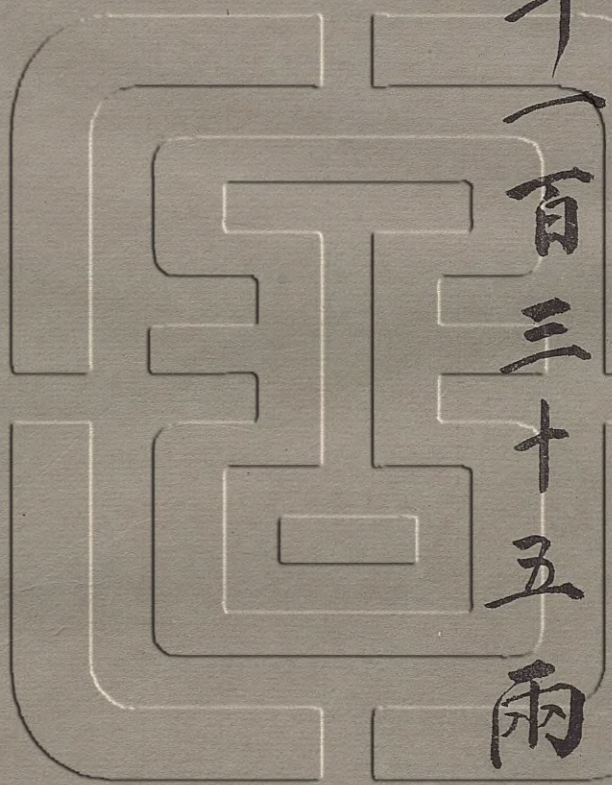 千一百三十五兩